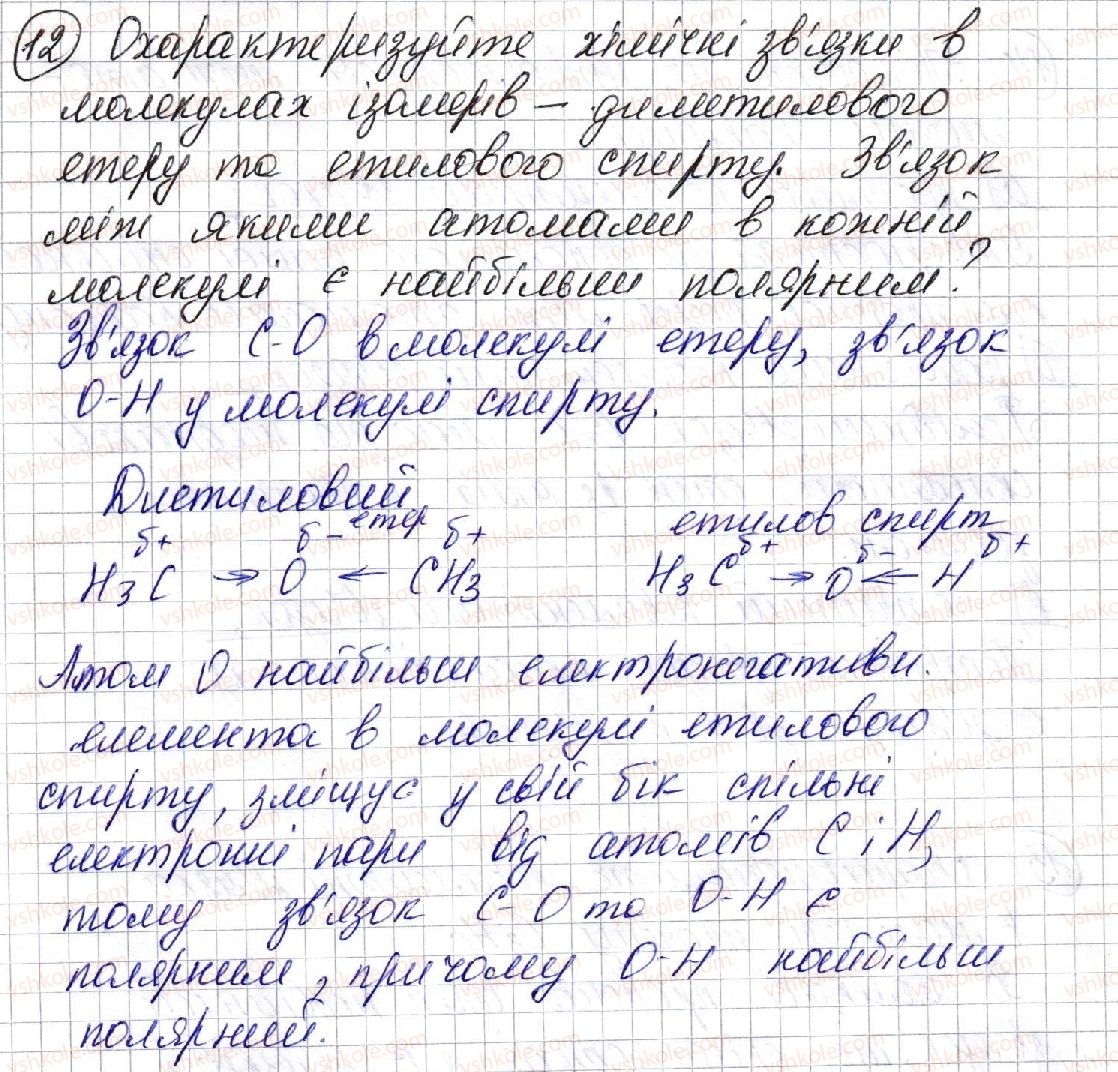 12 Охарактеризуйте хімічні зв'язки в
молекулах ізомерів – диметилового
етеру та етилового спирту. Зв'язок
між якими атомами в кожній
молекулі є найбільш полярним?
Зв'язок C-O в молекулі етеру, зв'язок
O-H у молекулі спирту.
Диетиловий
етер
етилов спирт
δ+ δ- δ+ δ+ δ- δ+
H3C → O ← CH3 H3C → O ← H
Атом O найбільш електронегативн.
елемента в молекулі етилового
спирту, зміщує у свій бік спільні
електронні пари від атомів C і H,
тому зв'язок C-O та O-H є
полярним, причому O-H найбільш
полярний.